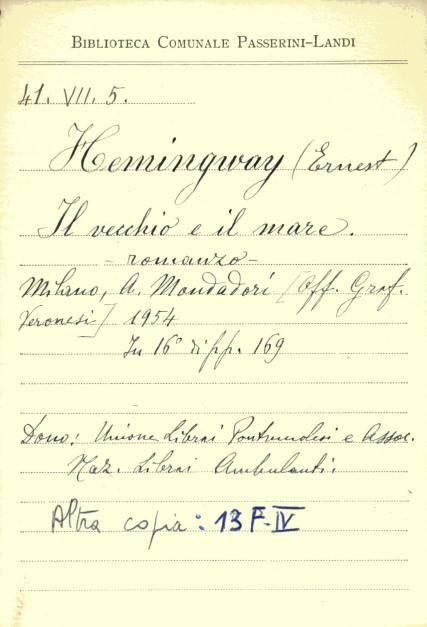 BIBLIOTECA COMUNALE PASSERINI-LANDI
41. VII. 5.
Hemingway (Ernest)
Il vecchio e il mare.
- romanzo -
Milano, A. Mondadori [Off. Graf.
Veronesi] 1954
In 16° di pp. 169
Dono: Unione Librai Pontremolesi e Assoc.
Naz. Librai Ambulanti.
Altra copia: 13 F-IV